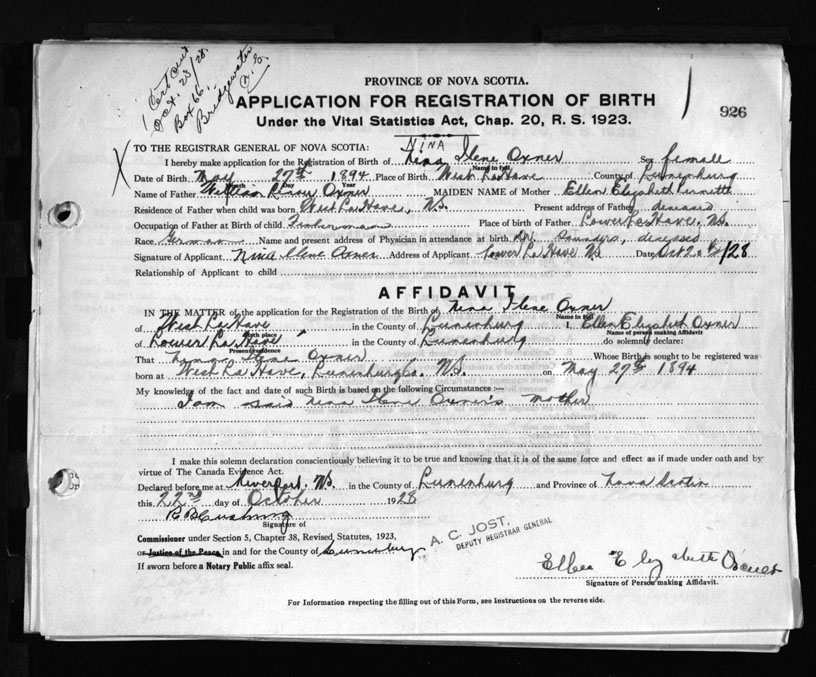 1 Cert Out
Oct. 23/28.
Box 66.
Bridgewater
N.S.
PROVINCE OF NOVA SCOTIA.
APPLICATION FOR REGISTRATION OF BIRTH
926
Under the Vital Statistics Act, Chap. 20, R. S. 1923.
TO THE REGISTRAR GENERAL OF NOVA SCOTIA:
NINA
I hereby make application for the Registration of Birth of Nina Ilene Oxner Sex female
Name in full
Date of Birth May 27th 1894 Place of Birth West LaHave County of Lunenburg
Month Day Year
Name of Father William Oxner MAIDEN NAME of Mother Ellen Elizabeth Pernette
Residence of Father when child was born West LaHave, NS. Present address of Father deceased
Occupation of Father at Birth of child Fisherman Place of birth of Father Lower LaHave. NS.
Race German Name and present address of Physician in attendance at birth Dr. Saunders, deceased
Signature of Applicant Nina Ilene Oxner Address of Applicant Lower LaHave NS Date Oct 2 /28
Relationship of Applicant to child
AFFIDAVIT
IN THE MATTER of the application for the Registration of the Birth of Nina Ilene Oxner
Name in full
of West LaHave in the County of Lunenburg I, Ellen Elizabeth Oxner
Birth place Name of person making Affidavit
of Lower LaHave in the County of Lunenburg do solemnly declare:
Present residence
That Ilene Oxner Whose Birth is sought to be registered was
born at West LaHave, Lunenburg Co. NS. on May 27th 1894
My knowledge of the fact and date of such Birth is based on the following Circumstances :—
I am said Nina Ilene Oxner's mother
I make this solemn declaration conscientiously believing it to be true and knowing that it is of the same force and effect as if made under oath and by
virtue of The Canada Evidence Act.
Declared before me at Riverport. NS. in the County of Lunenburg and Province of Nova Scotia
this 22nd day of October 1928
Cushing
Signature of
Commissioner under Section 5, Chapter 38, Revised, Statutes, 1923,
or Justice of the Peace in and for the County of Lunenburg
If sworn before a Notary Public affix seal.
A. C. JOST,
DEPUTY REGISTRAR GENERAL
Ellen Elizabeth Oxner
Signature of Person making Affidavit.
For Information respecting the filling out of this Form, see Instructions on the reverse side.